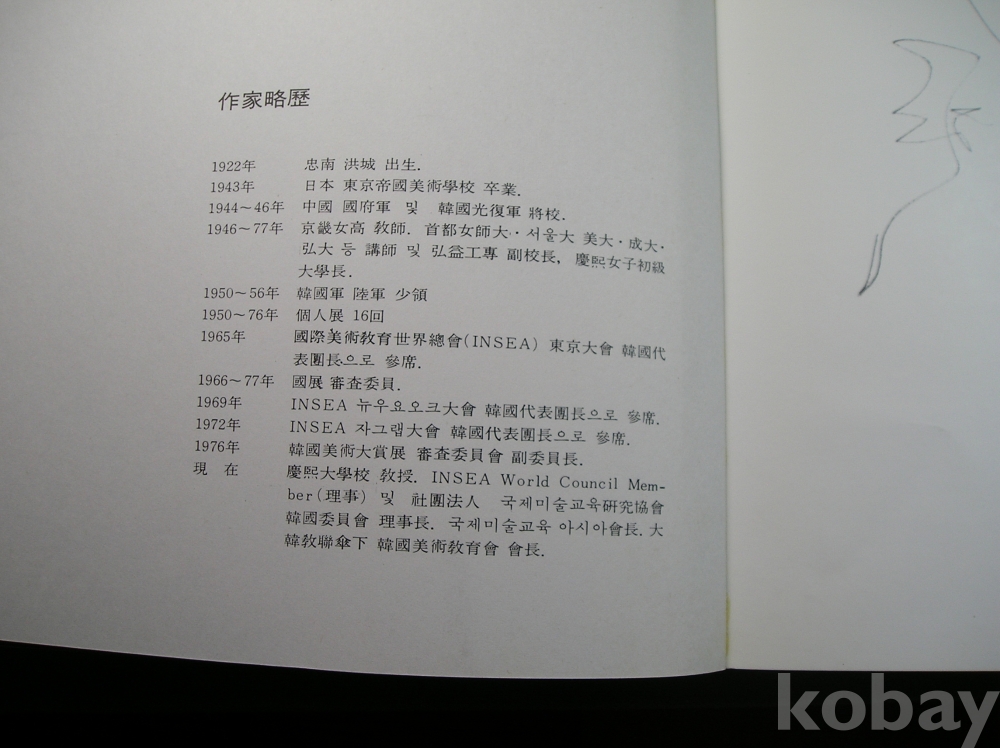 作家略歷
1922年 忠南 洪城 出生.
1943年 日本 東京帝國美術學校 卒業.
1944～46年 中國 國府軍 및 韓國光復軍 將校.
1946～77年 京畿女高 敎師. 首都女師大·서울大 美大·成大·
弘大 等 講師 및 弘益工專 副校長, 慶熙女子初級
大學長.
1950～56年 韓國軍 陸軍 少領
1950～76年 個人展 16回
1965年 國際美術敎育世界總會(INSEA) 東京大會 韓國代
表團長으로 參席.
1966～77年 國展 審査委員.
1969年 INSEA 뉴우요오크大會 韓國代表團長으로 參席.
1972年 INSEA 자그랩大會 韓國代表團長으로 參席.
1976年 韓國美術大賞展 審査委員會 副委員長.
現 在 慶熙大學校 敎授. INSEA World Council Mem-
ber(理事) 및 社團法人 국제미술교육硏究協會
韓國委員會 理事長. 국제미술교육 아시아會長. 大
韓敎聯傘下 韓國美術敎育會 會長.
kobay